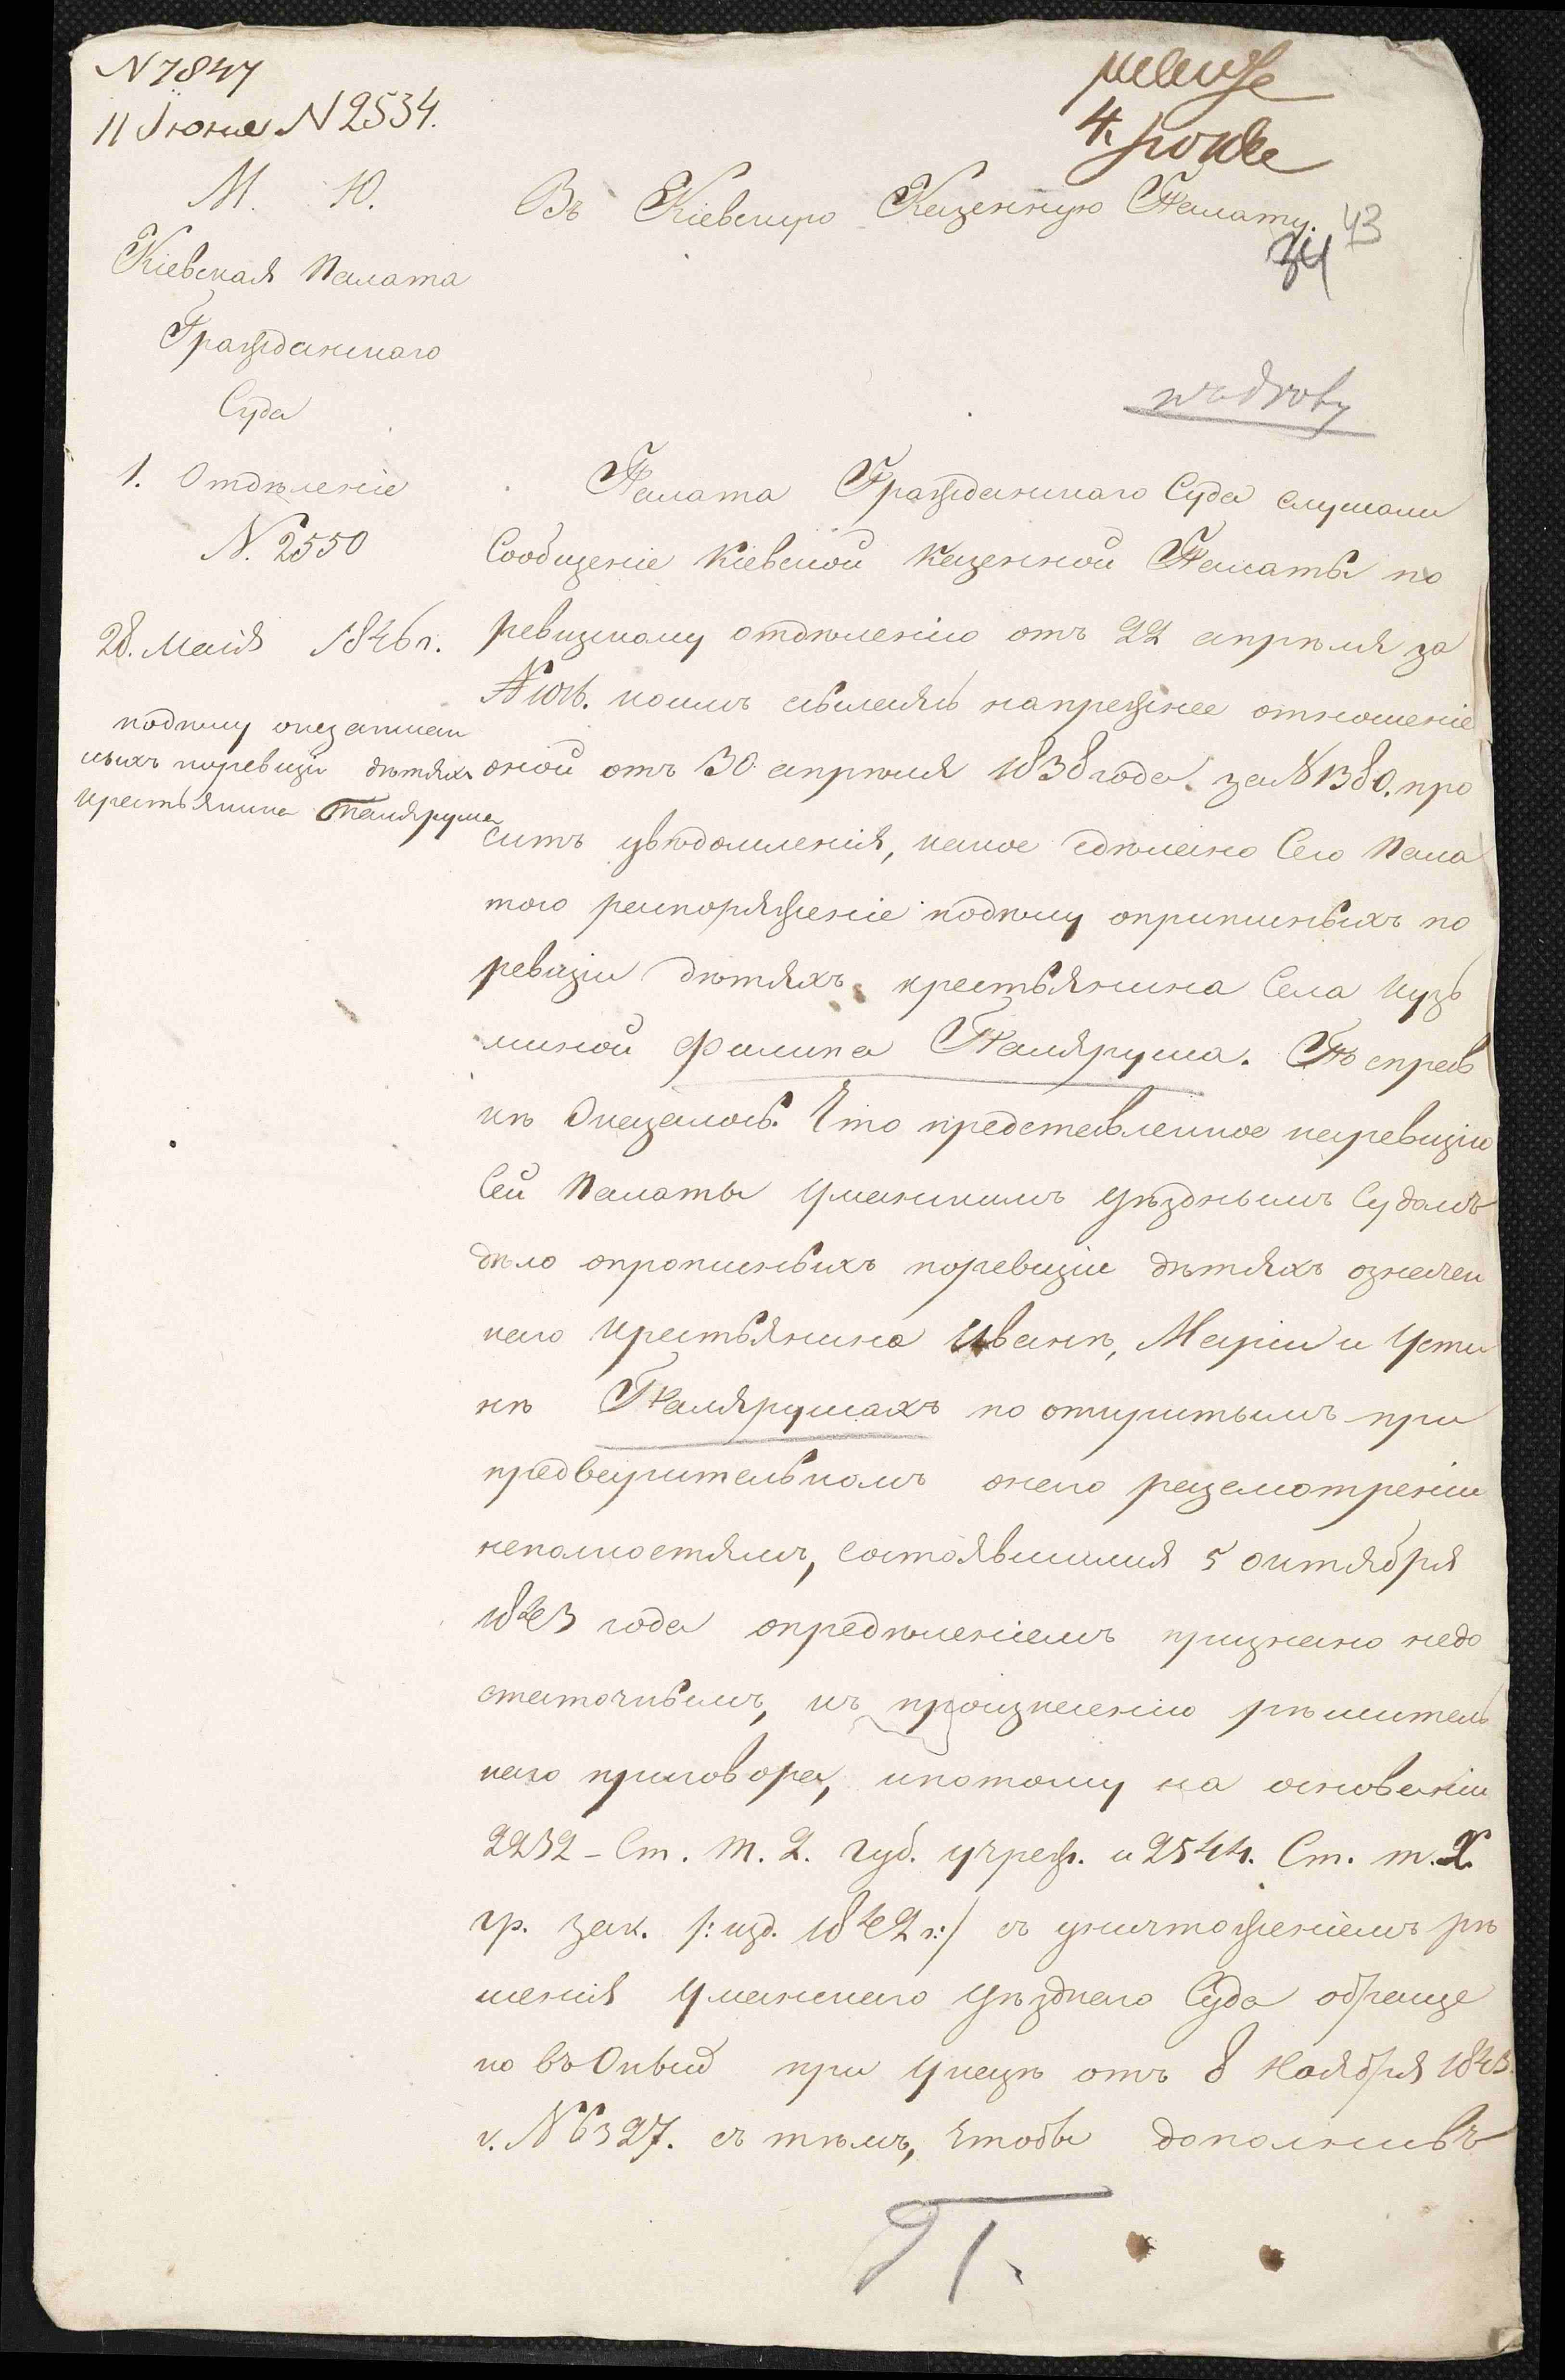 N 7847
11 Июня N 2534.
4. Июля
М. Ю.
Кіевская Палата
Гражданскаго
Суда
1. Отдѣленіе
N. 2550
28. Маія 1846 г.
подѣлу оказаннан
ныхъ поревизіи дѣтяхъ
крестьянина Паляруша
Въ Кіевскую Казенную Палату.
43
34
Палата Гражданскаго Суда слушали
Сообщеніе Кіевской Казенной Палаты по
ревизскому отдѣленію отъ 22 апрѣля за
N коимъ ссылаясь напрежнее отношеніе
оной отъ 30 апрѣля 1838 года за N 1380. про
ситъ увѣдомленія, какое сдѣлано Сею Пала
тою распоряженіе подѣлу опрописныхъ по
ревизіи дѣтяхъ крестьянина Села Кузь
миной Филипа Паляруша. По справ
кѣ Оказалось: Что представленное наревизію
Сей Палаты Уманскимъ Уѣзднымъ Судомъ
дѣло опрописныхъ поревизіи дѣтяхъ означен
наго крестьянина Иванѣ, Маріи и Усти
нѣ Палярушахъ по открытымъ при
предварительномъ онаго разсмотреніи
неполностямъ, состоявшимся 5 октября
1843 года опредѣленіемъ признано недо
статочнымъ, къ произнесенію рѣшитель
наго приговора, ипотому на основаніи
2232 - Ст. т. 2. губ. учреж. и 2544. Ст. т. X.
гр. зак. /: изд. 1842 г:/ съ уничтоженіемъ рѣ
шенія Уманскаго Уѣзднаго Суда обраще
но въ Оный при Указѣ отъ 8 Ноября 1843.
г. N 6327. съ тѣмъ, чтобы дополнивъ